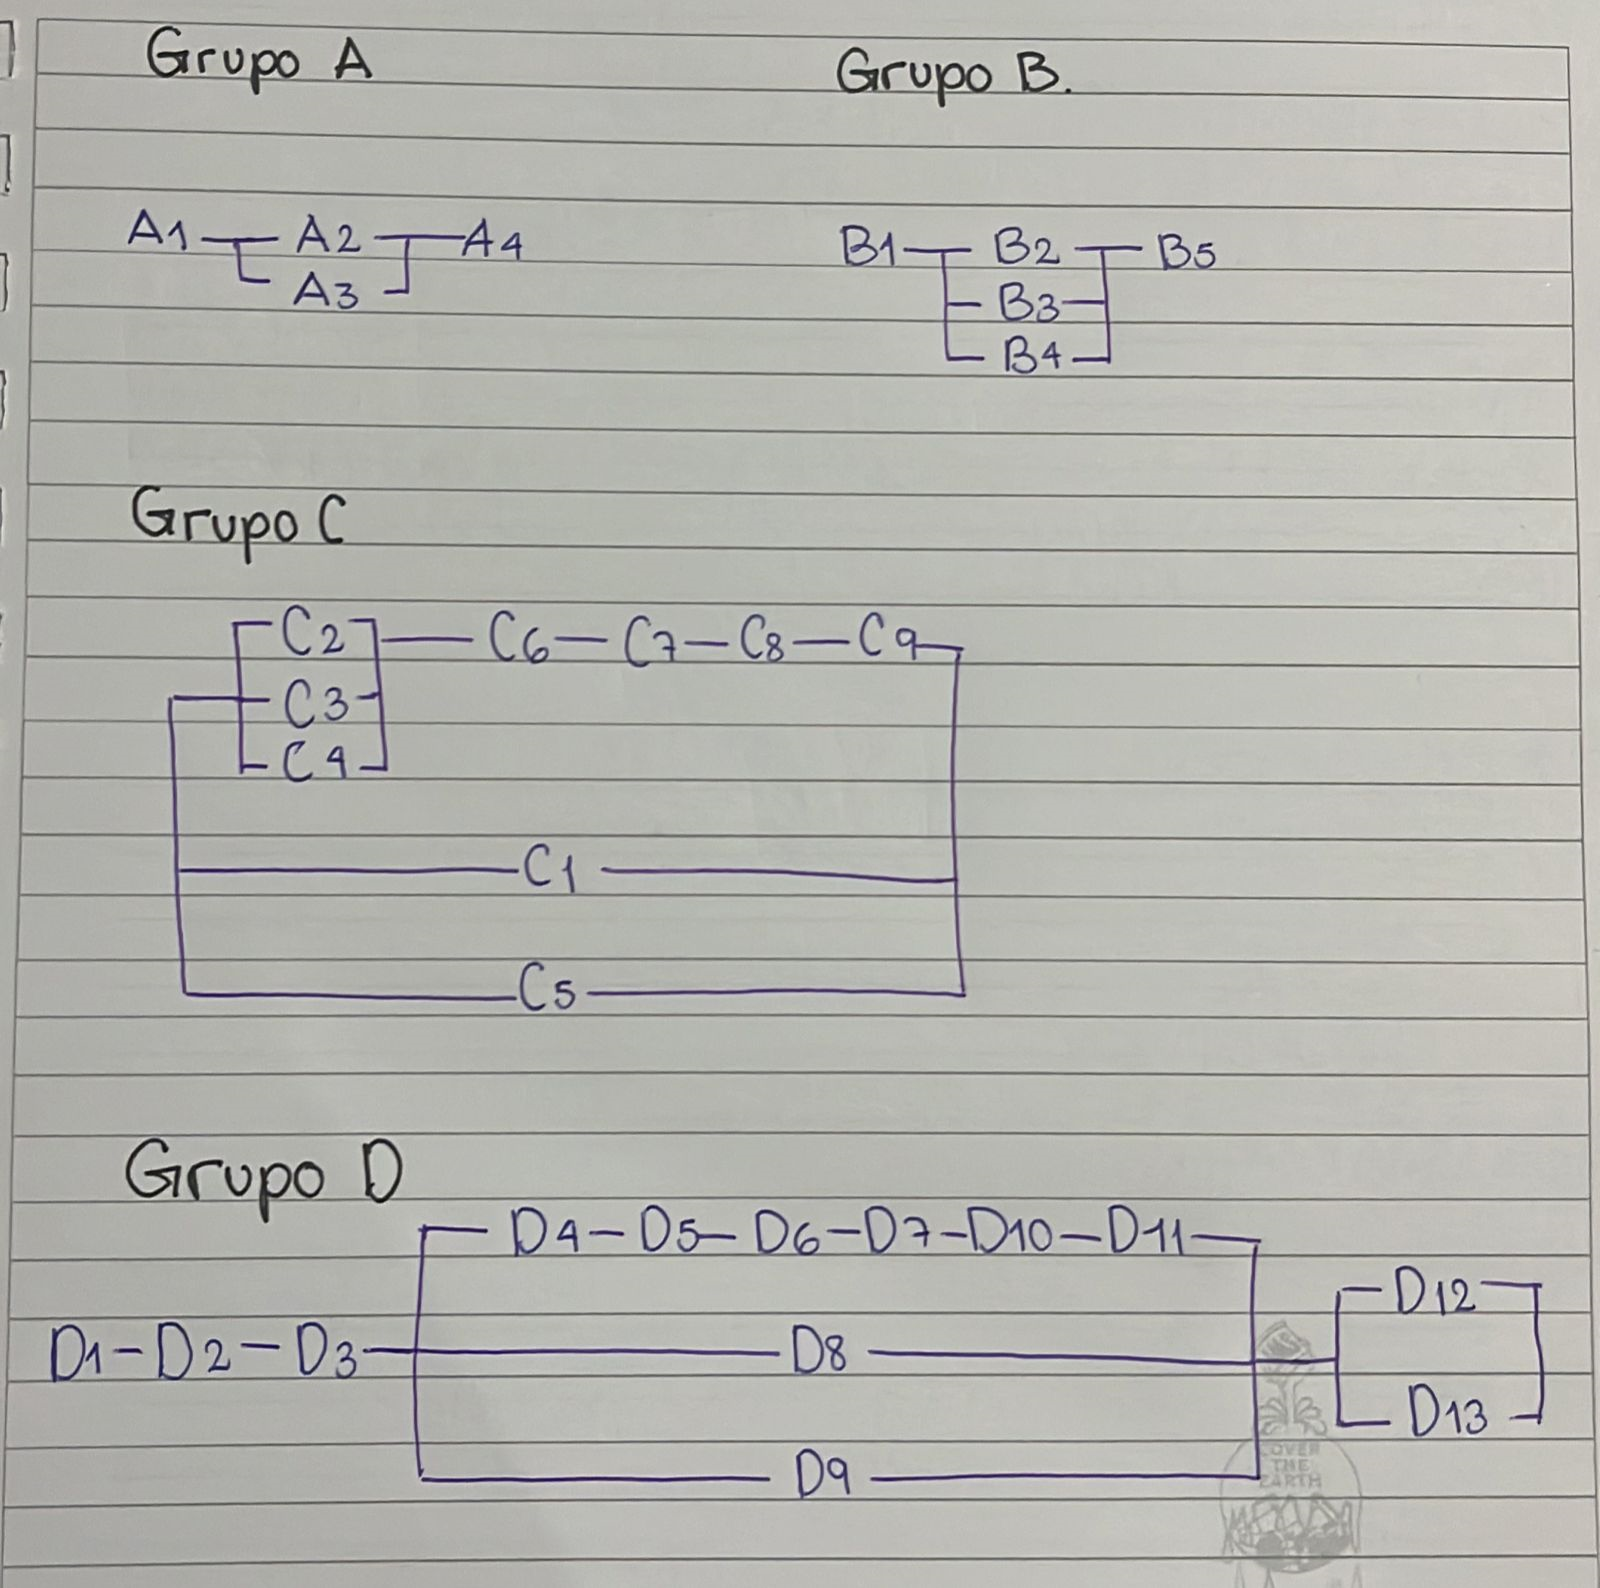 Grupo A
Grupo B.
A1 A2 A4
A3
B1 B2 B5
B3
B4
Grupo C
C2 C6 C7 C8 C9
C3
C4
C1
C5
Grupo D
D4 - D5 - D6 - D7 - D10 - D11
D12
D1 - D2 - D3 D8
D13
D9
OVER
THE
EARTH